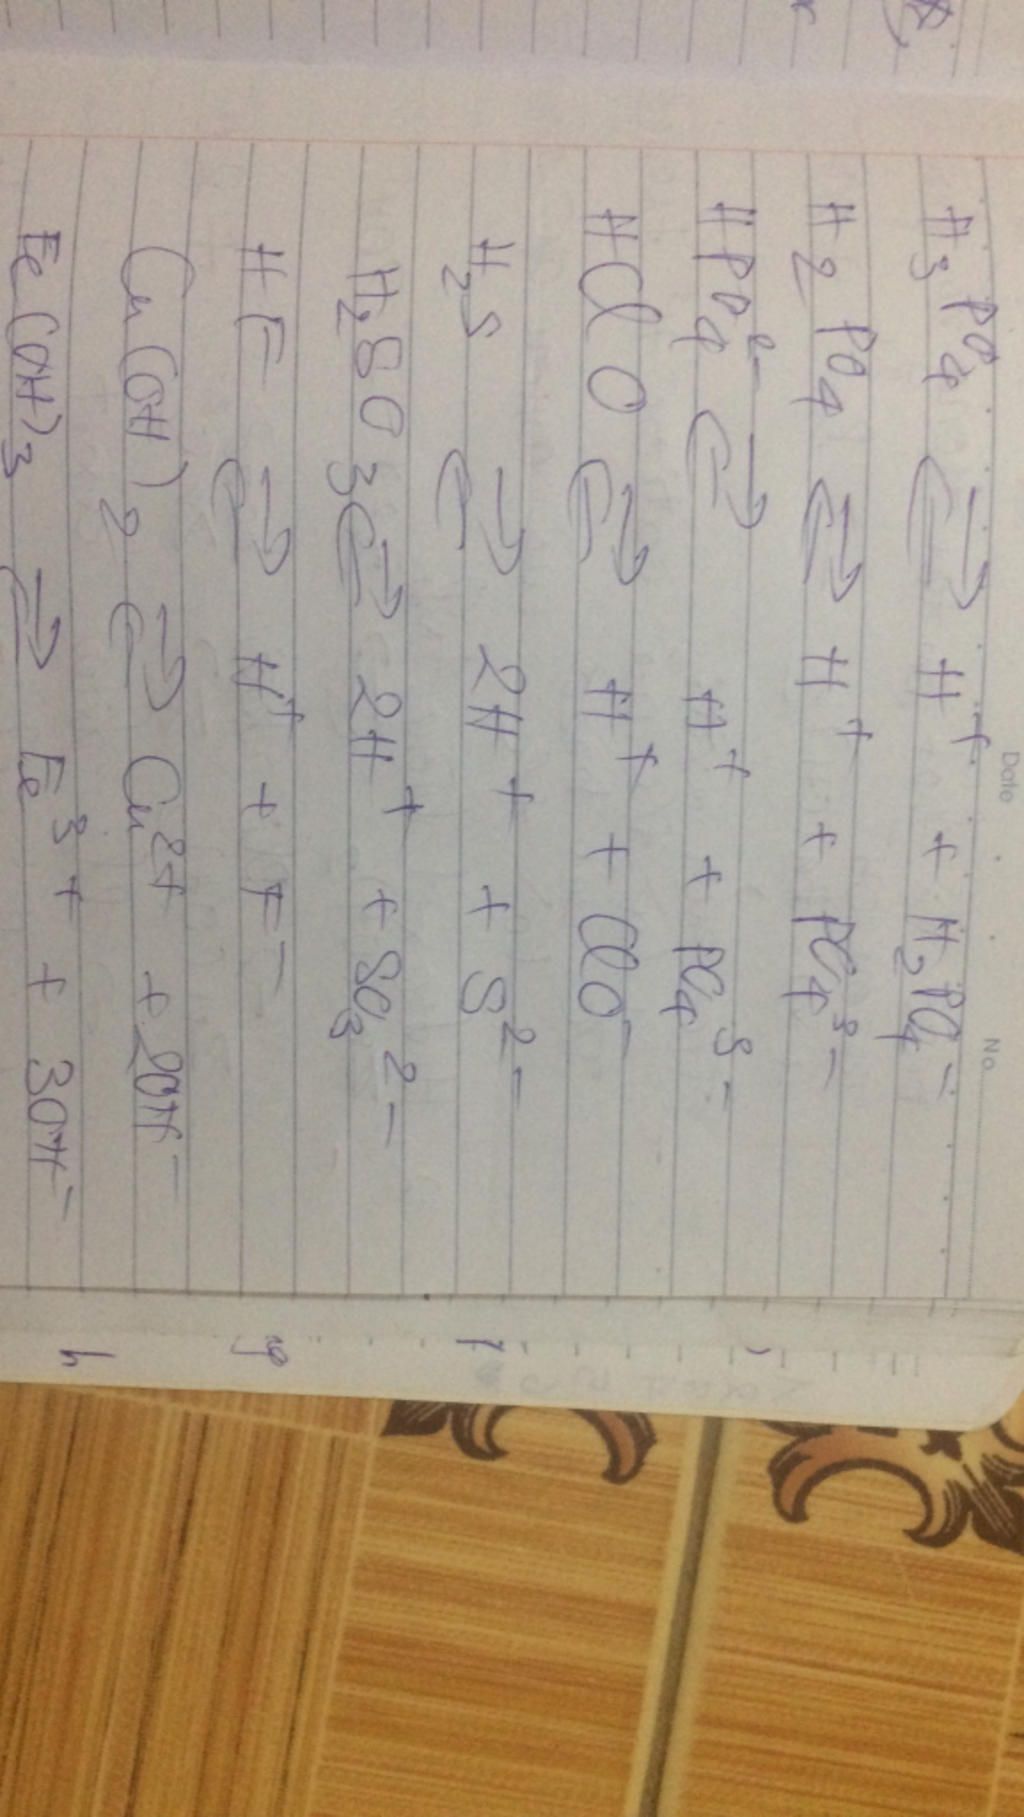 Date No.
H₃PO₄ ⇌ H⁺ + H₂PO₄⁻
H₂PO₄ ⇌ H⁺ + PO₄³⁻
HPO₄²⁻ ⇌ H⁺ + PO₄³⁻
HClO ⇌ H⁺ + ClO⁻
H₂S ⇌ 2H⁺ + S²⁻
H₂SO₃ ⇌ 2H⁺ + SO₃²⁻
HF ⇌ H⁺ + F⁻
Cu(OH)₂ ⇌ Cu²⁺ + 2OH⁻
Fe(OH)₃ ⇌ Fe³⁺ + 3OH⁻